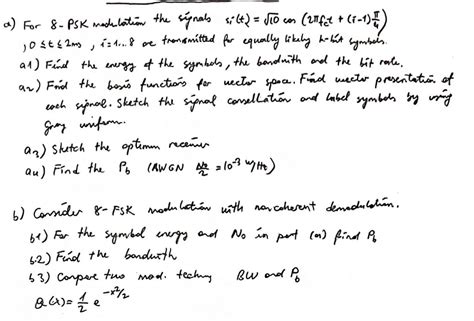 a) For 8-PSK modulation the signals si(t) = √10 cos (2πfct + (i-1)π/4)
, 0 ≤ t ≤ 2ms , i=1...8 are transmitted for equally likely k-bit symbols.
a1) Find the energy of the symbols, the bandwith and the bit rate.
a2) Find the basis functions for vector space. Find vector presentation of
each signal. Sketch the signal consellation and label symbols by using
Gray uniform.
a3) Sketch the optimum receiver
a4) Find the Pb (AWGN No/2 = 10^-3 W/Hz)
b) Consider 8-FSK modulation with noncoherent demodulation.
b1) For the symbol energy and No in part (a) find Pb
b.2) Find the bandwith
b3) Compare two mod. techniq BW and Pb
Q(x) = 1/2 e^-x²/2